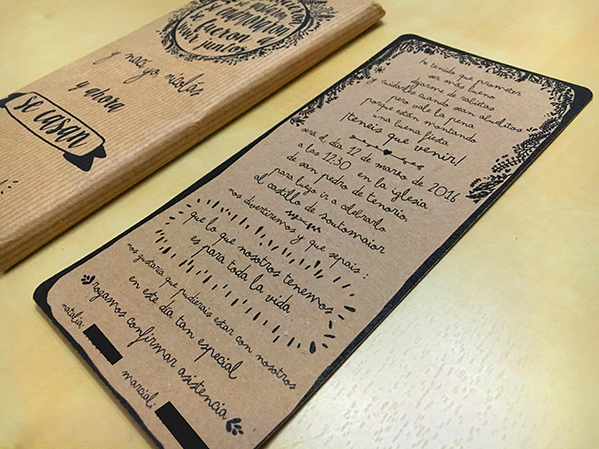 se gustaron
se fueron a
vivir juntos
y nací yo, nicolás
y ahora
se casan
he tenido que prometer
ser más bueno
dejarme de rabietas
y cuidarles cuando sean abuelitos
pero vale la pena
porque están montando
una buena fiesta
¡teneis que venir!
será el día 12 de marzo de 2016
a las 12:30 en la iglesia
de san pedro de tenorio
para luego ir a celebrarlo
al castillo de soutomaior
nos divertiremos y que sepais:
que lo que nosotros tenemos
es para toda la vida
nos gustaría que pudierais estar con nosotros
en este día tan especial
rogamos confirmar asistencia
natalia:
marcial: